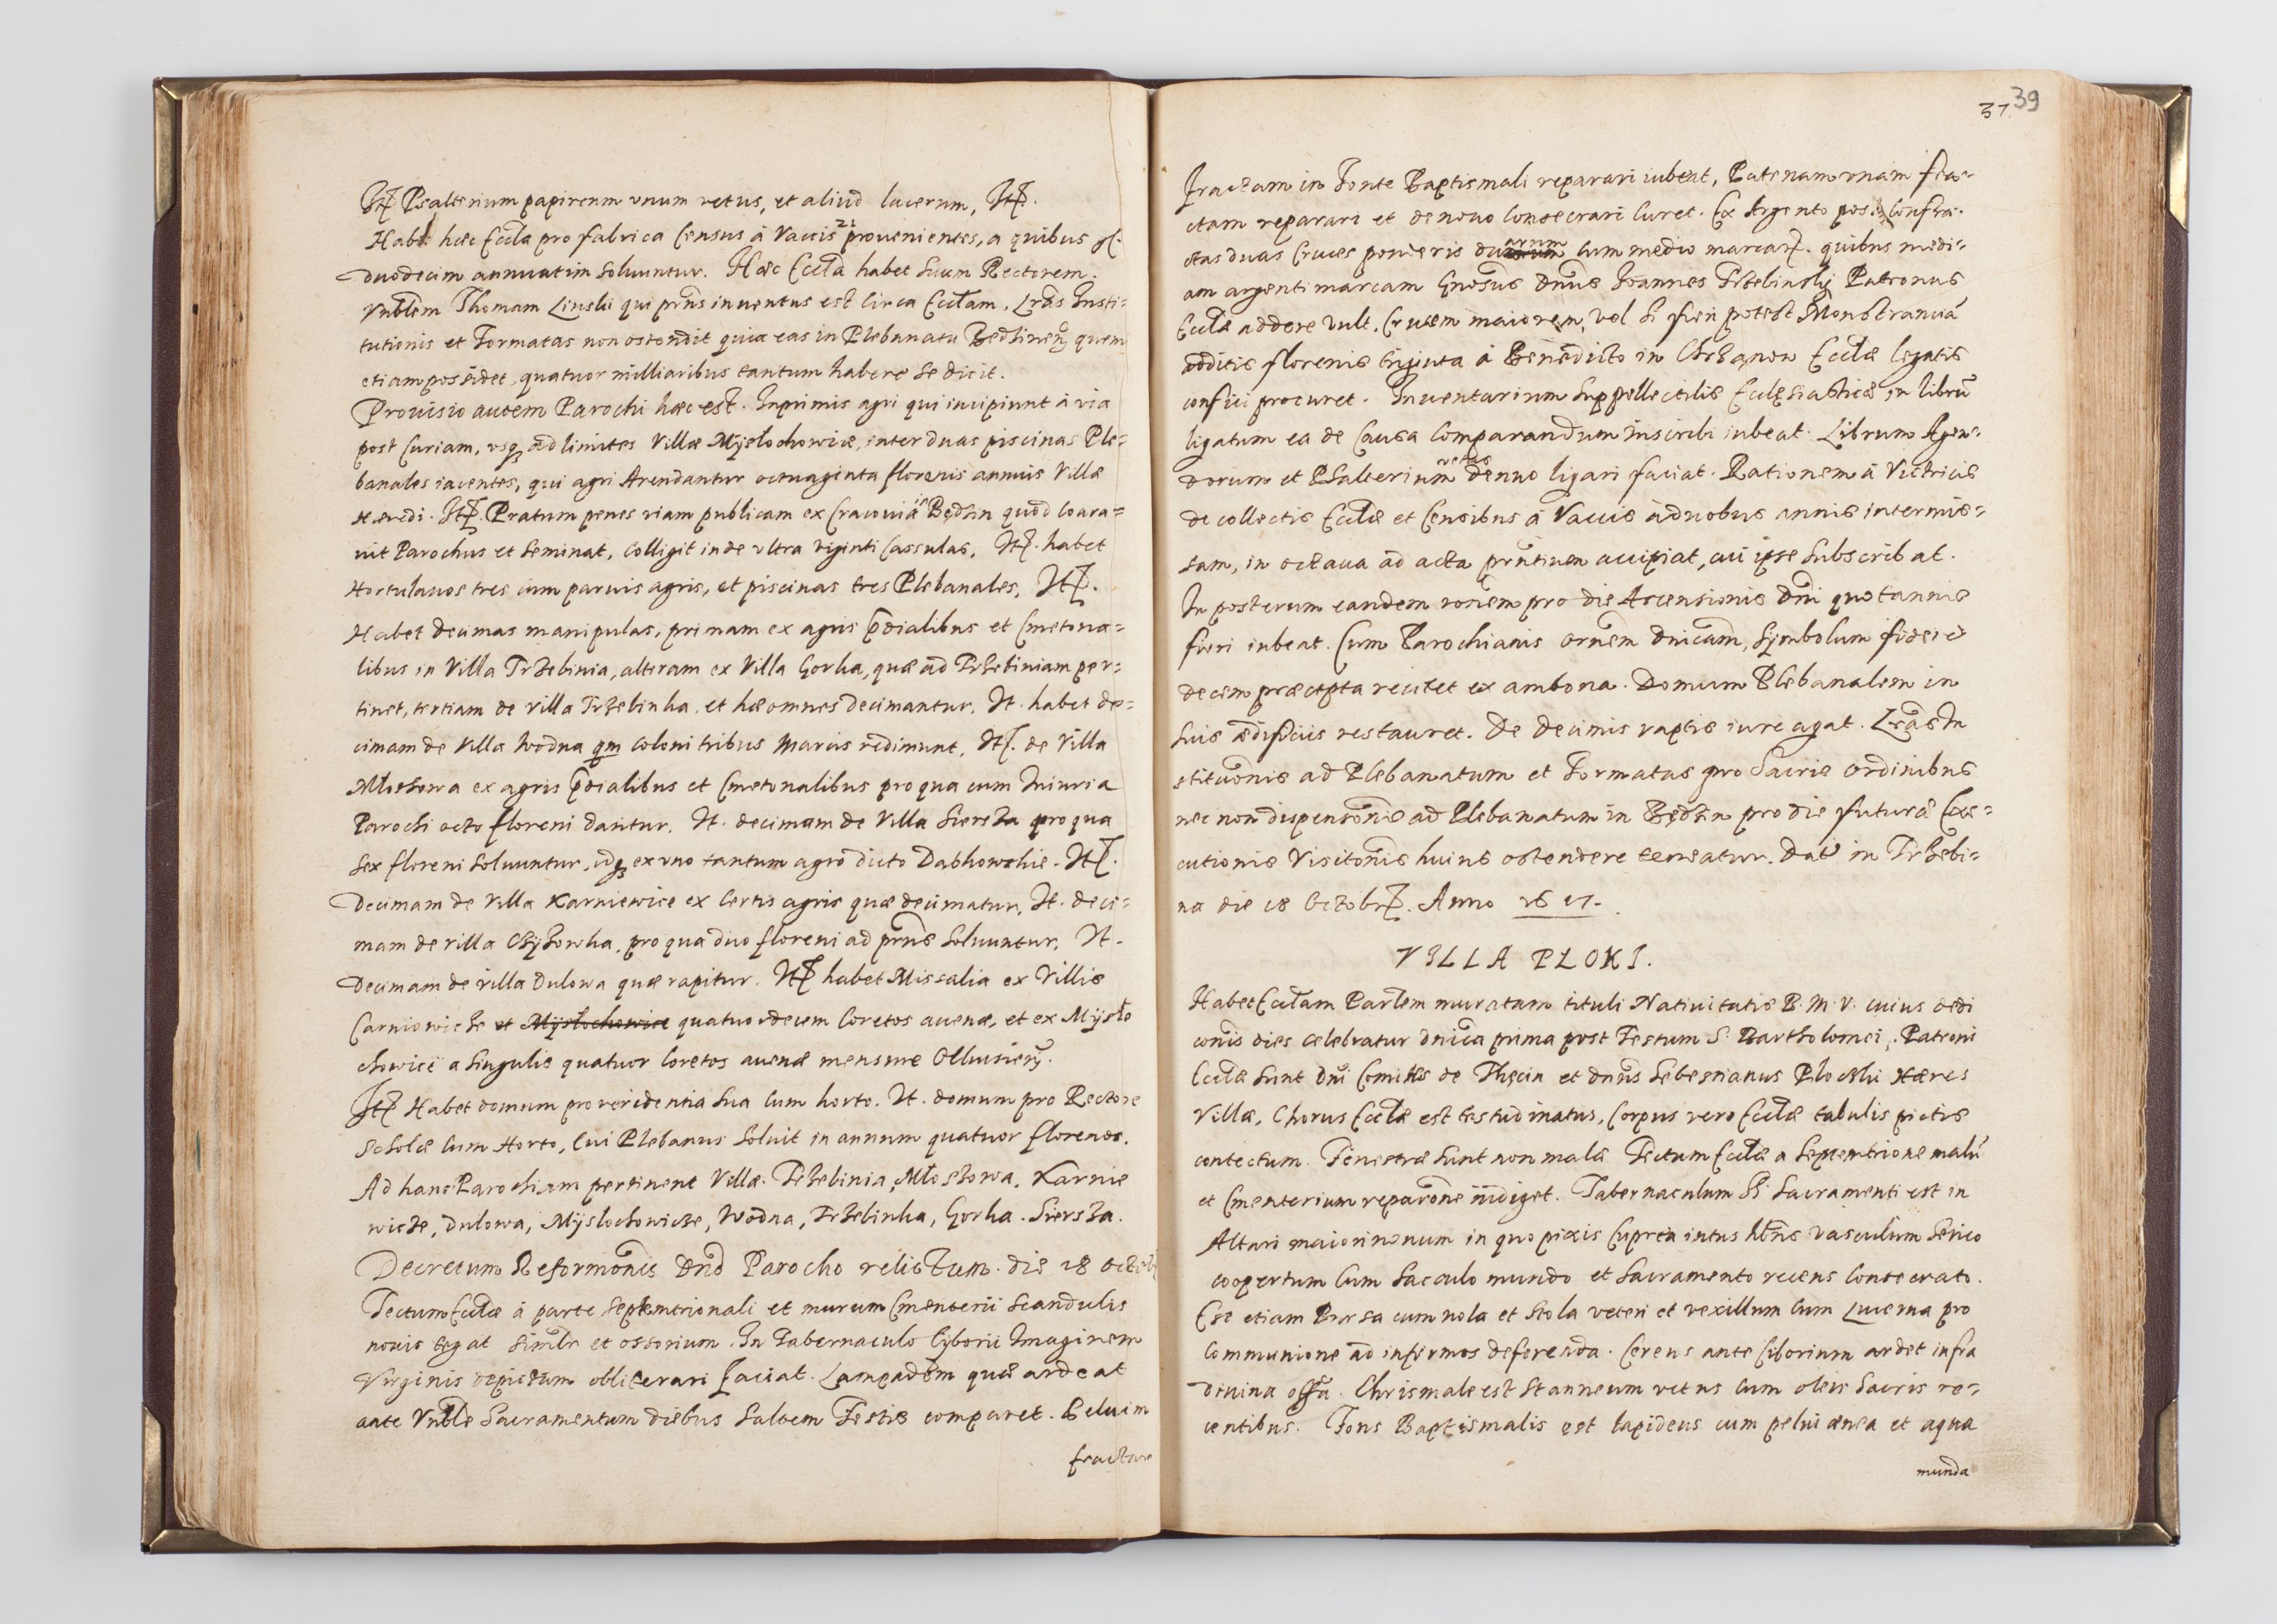 Itē Psalterium papireum vnum vetus, et aliud lacerum, Itē.
Habet haec Eccla pro fabrica Census à Vaccis 21 prouenientes, a quibus fl.
duodecim annuatim soluuntur. Haec Eccla habet suum Rectorem.
Vnblem Thomam Linski qui prñs inuentus est circa Ecclam. Lrās Insti-
tutionis et Formatas non ostendit quia eas in Plebanatu Bedzinen quem
etiam possidet, quatuor milliaribus tantum habere se dicit.
Prouisio autem Parochi haec est. Inprimis agri qui incipiunt à via
post Curiam, vsq ad limites Villae Mysłochowice, inter duas piscinas Ple-
banales iacentes, qui agri Arendantur octuaginta florenis annuis Villae
Haeredi. Itē. Pratum penes viam publicam ex Cracouia in Będzin quod exara-
uit Parochus et seminat, colligit inde vltra viginti Cassulas, Itē. habet
Hortulanos tres cum paruis agris, et piscinas tres Plebanales, Itē.
Habet decimas manipulas, primam ex agris p̄dialibus et Cmetona-
libus in Villa Trzebinia, alteram ex Villa Gorka, quae ad Trzebiniam per-
tinet, tertiam de villa Trzebinka, et hae omnes decimantur. It. habet de-
cimam de Villa Wodna qm coloni tribus marcis redimunt, Itē. de Villa
Młoszowa ex agris p̄dialibus et Cmetonalibus pro qua cum iniuria
Parochi octo floreni dantur. It. decimam de Villa Siersza pro qua
sex floreni soluuntur, idq ex vno tantum agro dicto Dabkowskie. Itē.
Decimam de Villa Karniewice ex certis agris quae decimatur, It. deci-
mam de villa Czyzowka, pro qua duo floreni ad prñs soluuntur. It.
Decimam de villa Dulowa quae rapitur. Itē habet Missalia ex Villis
Carniowicze et Mysłochowice quatuordecim Coretos auenae, et ex Mysło
chowice a singulis quatuor coretos auenae mensurae Olkusien.
Itē Habet domum pro residentia sua cum horto. It. domum pro Rectore
Scholae cum Horto, cui Plebanus soluit in annum quatuor florenos.
Ad hanc Parochiam pertinent Villae. Trzebinia, Młoszowa, Karnie
wicze, Dulowa, Mysłochowicze, Wodna, Trzebinka, Gorka. Siersza.
Decretum Reformōnis Dnō Parocho relictum. die 18 Octob
Tectum Ecclae à parte septemtrionali et murum Cmenterii scandulis
nouis tegat similr et ossorium. In Tabernaculo Cyborii Imaginem
Virginis depictam obliterari faciat. Lampadem quae ardeat
ante Vnble Sacramentum diebus saltem Festis comparet. Peluim
fractam
37. 39
fractam in Fonte Baptismali reparari iubeat, Patenam vnam fra-
ctam reparari et denouo consecrari curet. Ex Argento post confra-
ctas duas Cruces ponderis duarum cum medio marcarē. quibus medi-
am argenti marcam Gnosus Dnus Joannes Trzebinsky Patronus
Ecclae addere vult, Crucem maiorem, vel si fieri potest Monstrantiā
additis florenis triginta à Benedicto in Chrzanow Ecclae legatis
confici procuret. Inuentarium suppellectilis Ecclesiasticae in librū
ligatum ea de causa comparandum inscribi iubeat. Librum Agen-
dorum et Psalterium vetus denuo ligari faciat. Rationem à Vitricis
de collectis Ecclae et Censibus à Vaccis à duobus annis intermis-
sam, in octaua ad acta prñtium accipiat, cui ipse subscribat.
In posterum eandem rōnem pro die Ascensionis Dni quotannis
fieri iubeat. Cum Parochianis Orñem Dnicam, Symbolum fidei et
decem praecepta recitet ex ambona. Domum Plebanalem in
suis aedificiis restauret. De decimis raptis iure agat. Lrās In
stitutōnis ad Plebanatum et Formatas pro Sacris Ordinibus
nec non dispensōnis ad Plebanatum in Będzin pro die futurae Exe-
cutionis Visitōnis huius ostendere teneatur. Dat in Trzebi-
na die 18 Octobrē. Anno 1617.
VILLA PLOKI.
Habet Ecclam Parlem muratam tituli Natiuitatis B. M. V. cuius dedi
cōnis dies celebratur Dnica prima post Festum S. Bartholomei. Patroni
Ecclae sunt Dni Comites de Thęcin et Dnus Sebestianus Plocki Haeres
Villae, Chorus Ecclae est testudinatus, Corpus vero Ecclae tabulis pictis
contectum. Fenestrae sunt non malae Tectum Ecclae a Septemtrione malū
et Cmenterium reparōne indiget. Tabernaculum SS Sacramenti est in
Altari maiori nouum in quo pixis Cuprea intus hñs vasculum serico
coopertum cum sacculo mundo et Sacramento recens consecrato.
Est etiam Bursa cum nola et stola veteri et vexillum cum Lucerna pro
Communione ad infirmos deferenda. Cereus ante Ciborium ardet infra
diuina offa. Chrismale est stanneum vetus cum oleis sacris re-
centibus. Fons Baptismalis est lapideus cum pelui aenea et aqua
munda